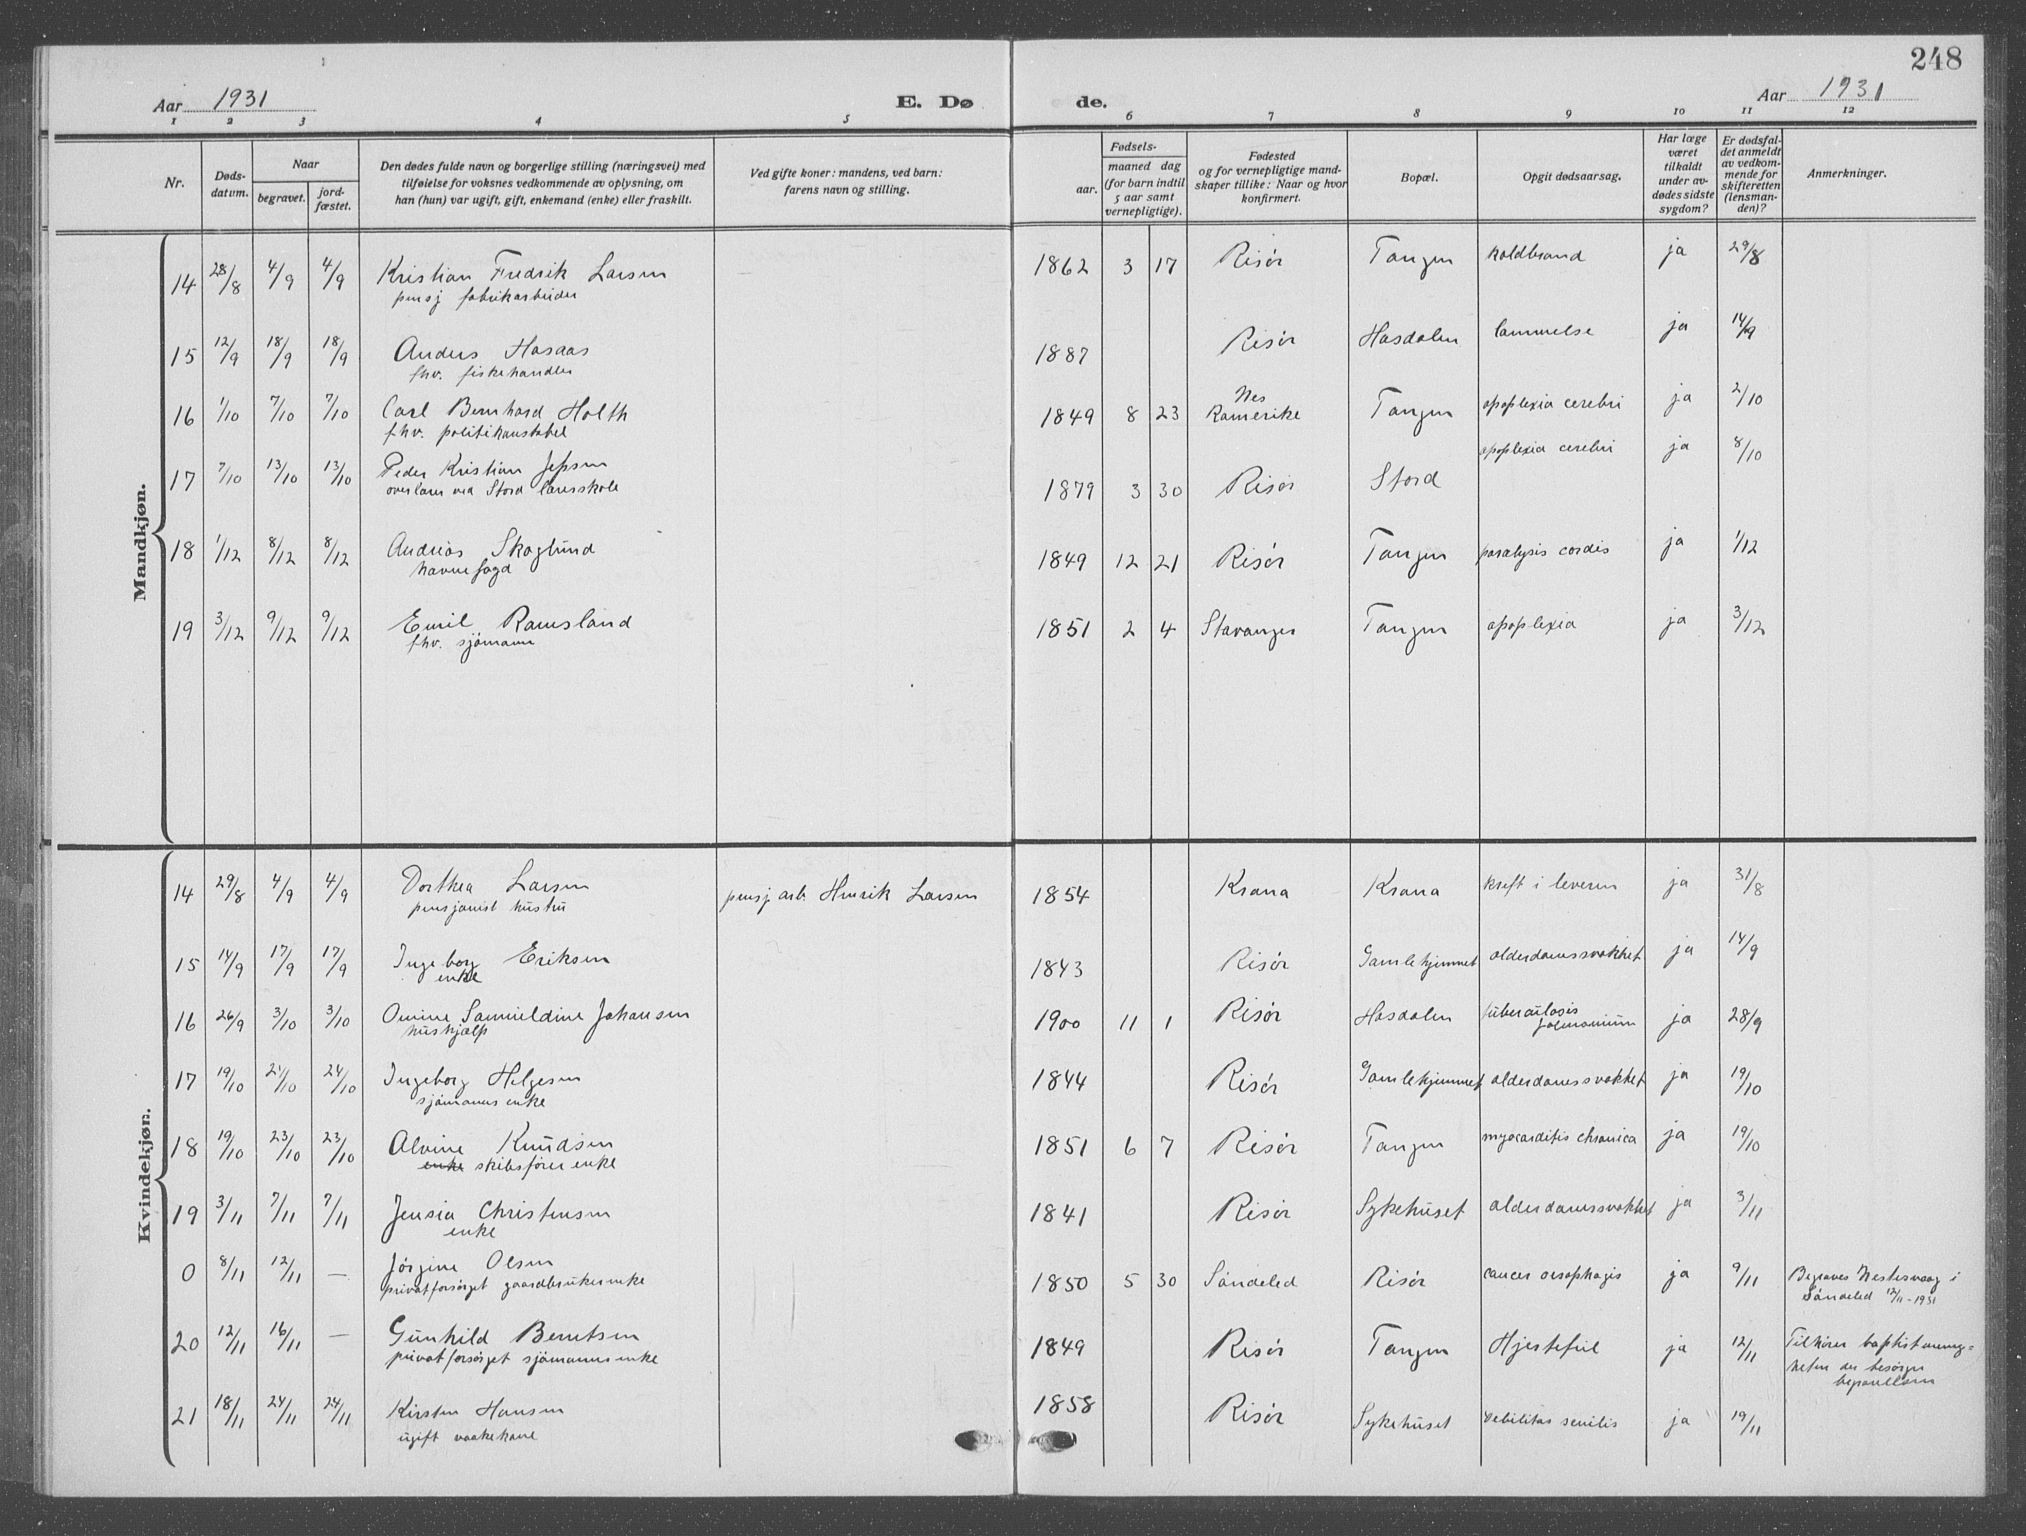 248
Aar 1931 E. Dø de. Aar 1931
1 2 3 4 5 6 7 8 9 10 11 12
Nr.
Døds-
datum.
Naar
begravet.
jord-
fæstet.
Den dødes fulde navn og borgerlige stilling (næringsvei) med
tilføielse for voksnes vedkommende av oplysning, om
han (hun) var ugift, gift, enkemand (enke) eller fraskilt.
Ved gifte koner: mandens, ved barn:
farens navn og stilling.
Fødsels-
aar.
maaned dag
(for barn indtil
5 aar samt
vernepligtige).
Fødested
og for vernepligtige mand-
skaper tillike: Naar og hvor
konfirmert.
Bopæl.
Opgit dødsaarsag.
Har læge
været
tilkaldt
under av-
dødes sidste
sygdom?
Er dødsfal-
det anmeldt
av vedkom-
mende for
skifteretten
(lensman-
den)?
Anmerkninger.
Mandkjøn.
14 28/8 4/9 4/9 Kristian Fredrik Larsen 1862 3 17 Risør Tangen koldbrand ja 29/8
pensj fabrikarbeider
15 12/9 18/9 18/9 Anders Hasaas 1887 Risør Hasdalen lammelse ja 14/9
fhv. fiskehandler
16 1/10 7/10 7/10 Carl Bernhard Holth 1849 8 23 Nes Romerike Tangen apoplexia cerebri ja 2/10
fhv. politikonstabel
17 7/10 13/10 13/10 Peder Kristian Jepsen 1879 3 30 Risør Stord apoplexia cerebri ja 8/10
overlærer ved Stord lærerskole
18 1/12 8/12 8/12 Andreas Skoglund 1849 12 21 Risør Tangen paralysis cordis ja 1/12
havnefogd
19 3/12 9/12 9/12 Emil Ramsland 1851 2 4 Stavanger Tangen apoplexia ja 3/12
fhv. sjømann
Kvindekjøn.
14 29/8 4/9 4/9 Dorthea Larsen pensj arb Henrik Larsen 1854 Krana Krana kreft i leveren ja 31/8
pensjonist hustru
15 14/9 17/9 17/9 Ingeborg Eriksen 1843 Risør Gamlehjemmet alderdomssvakhet ja 14/9
enke
16 26/9 3/10 3/10 Omine Samueldine Johansen 1900 11 1 Risør Hasdalen tuberculosis ja 28/9
hushjælp
17 19/10 24/10 24/10 Ingeborg Helgesen 1844 Risør Gamlehjemmet alderdomssvakhet ja 19/10
sjømanns enke
18 19/10 23/10 23/10 Alvine Knudsen 1851 6 7 Risør Tangen myocarditis chronica ja 19/10
enke skibsfører enke
19 3/11 7/11 7/11 Jensia Christensen 1841 Risør Sykehuset alderdomssvakhet ja 3/11
enke
0 8/11 12/11 — Jørgine Olsen 1850 5 30 Søndeled Risør cancer oesophagis ja 9/11 Begraves Nestesvaag i
privatforsørget gaardbrukerenke Søndeled 12/11-1931
20 12/11 16/11 — Gunhild Berntsen 1849 Risør Tangen Hjertefeil ja 12/11 Tilhører baptistmenig-
privatforsørget sjømannsenke heten der besørger
begravelsen
21 18/11 24/11 24/11 Kirsten Hansen 1858 Risør Sykehuset debilitas senilis ja 19/11
ugift vaakekone